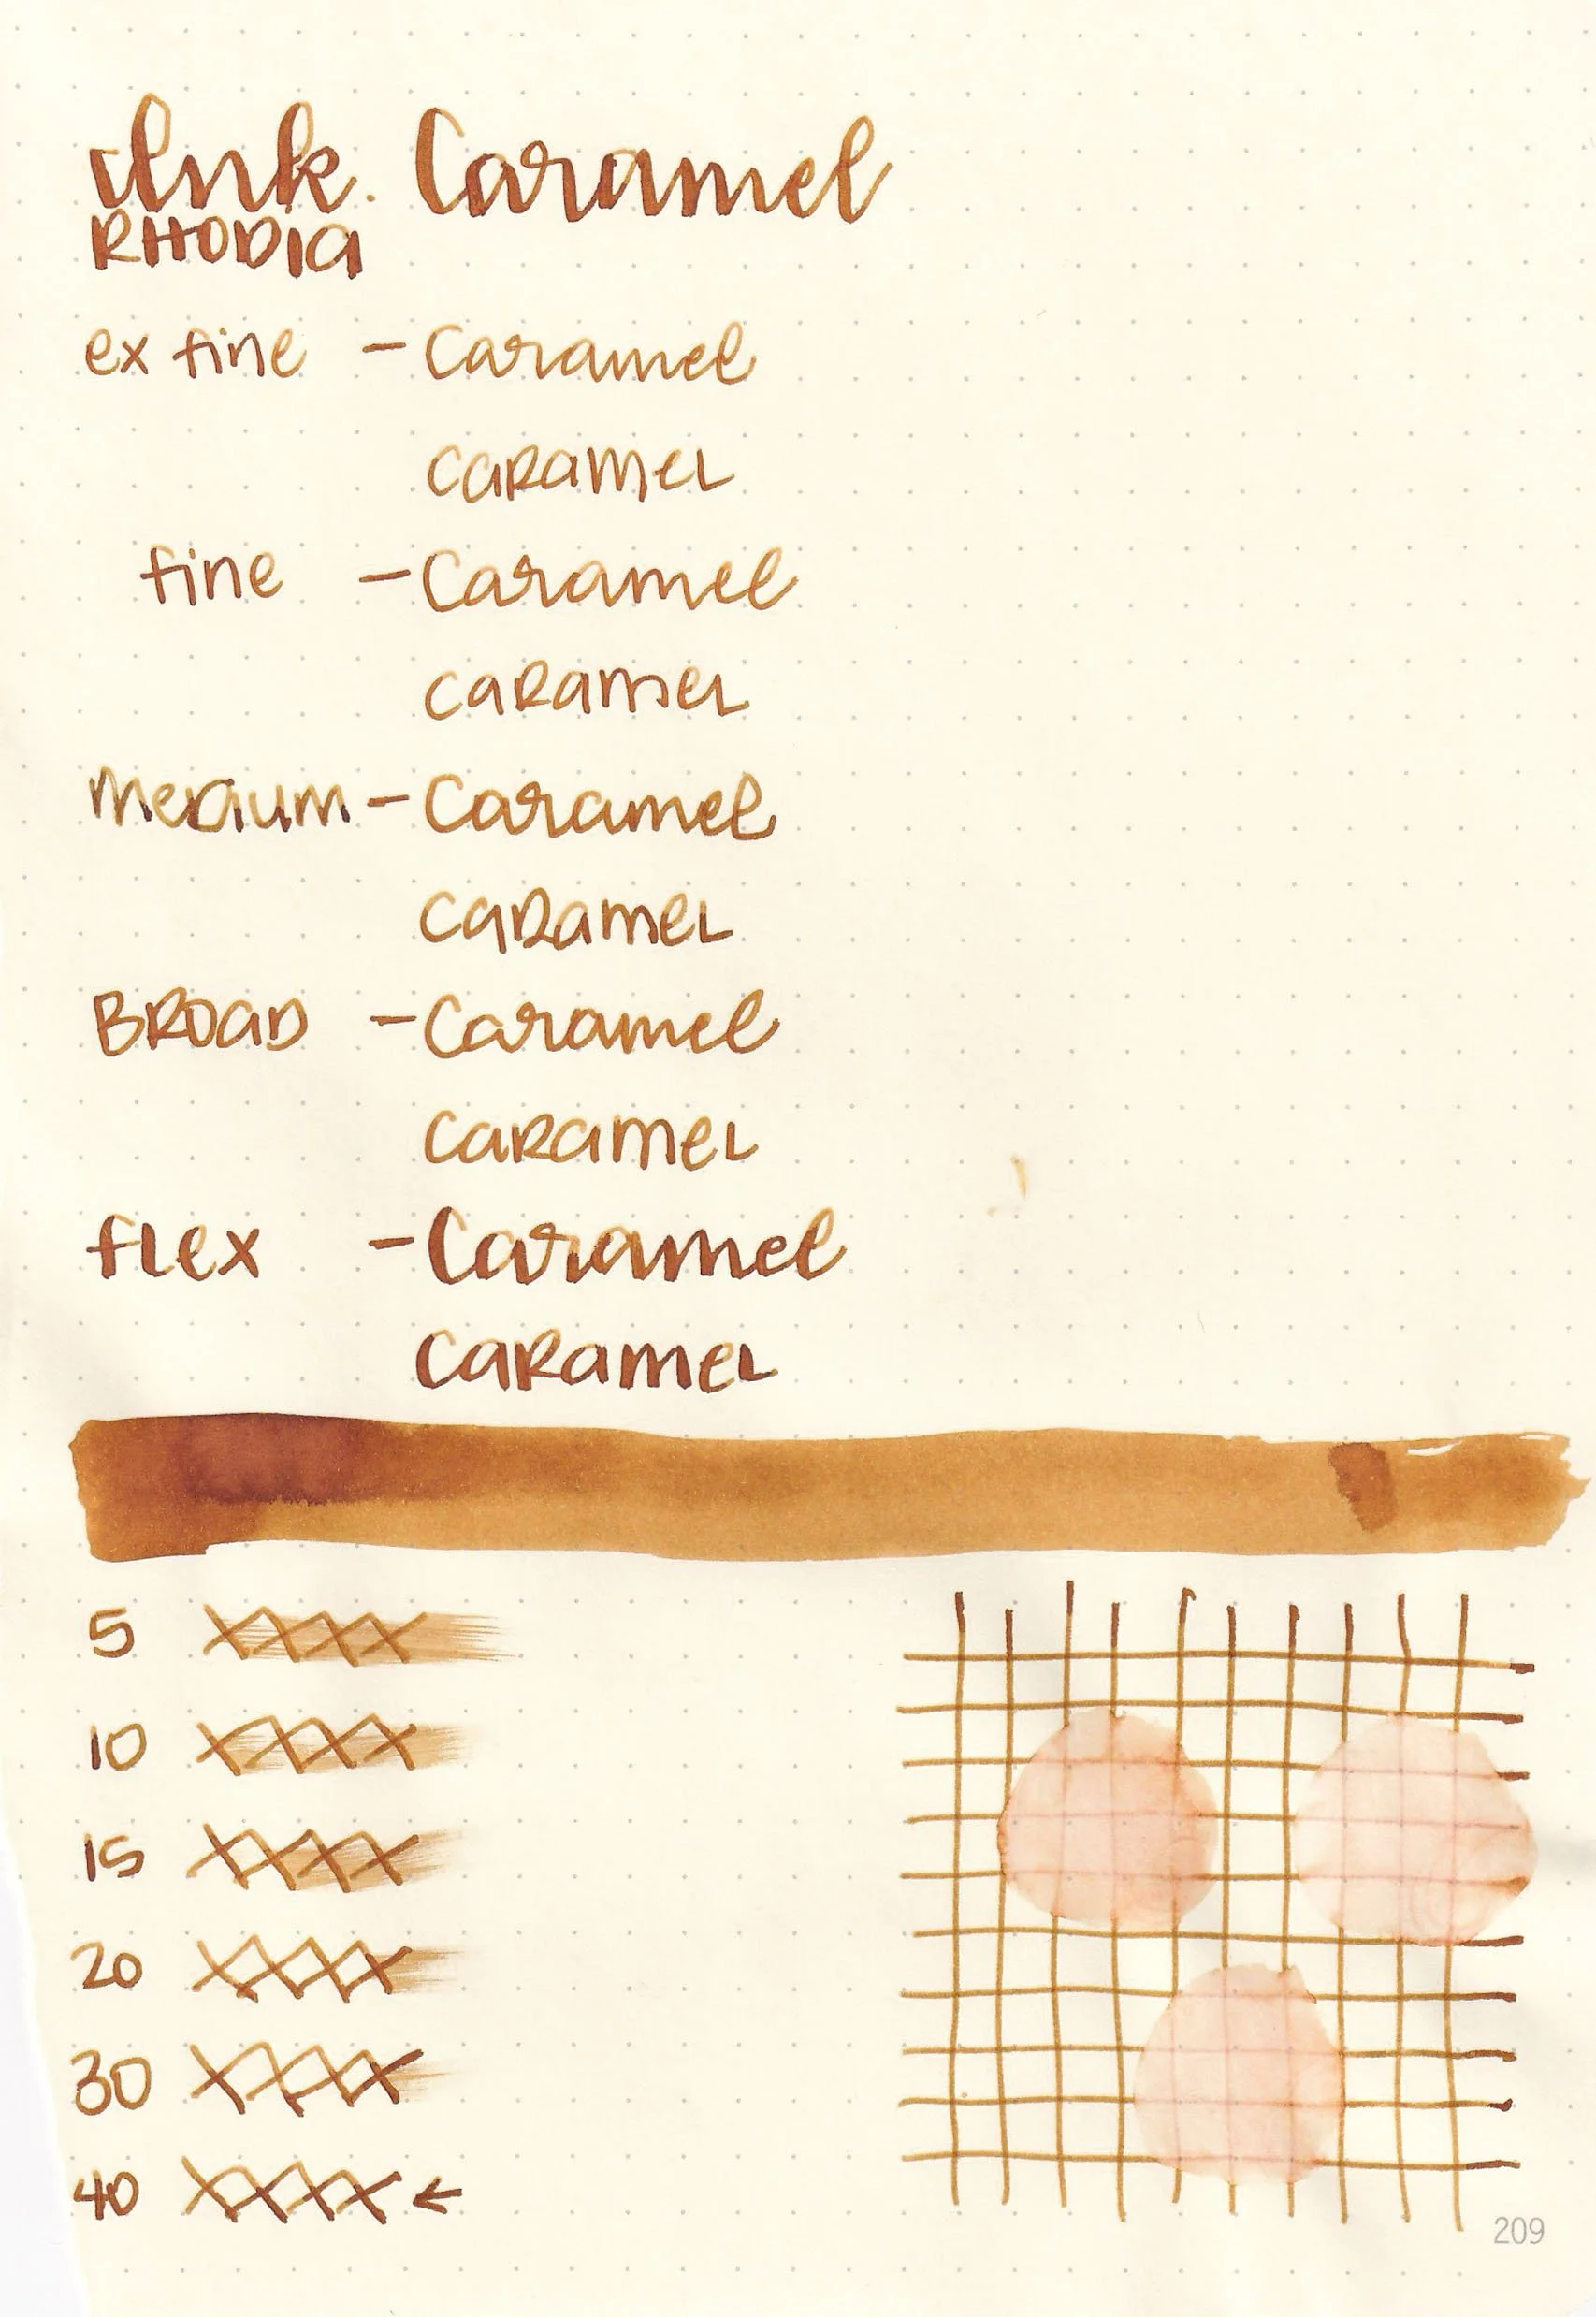 Ink. Caramel
RHODIA
ex fine - Caramel
CARAMEL
fine - Caramel
CARAMEL
MEDIUM - Caramel
CARAMEL
BROAD - Caramel
CARAMEL
FLEX - Caramel
CARAMEL
5 XXXX
10 XXXX
15 XXXX
20 XXXX
30 XXXX
40 XXXX ←
209